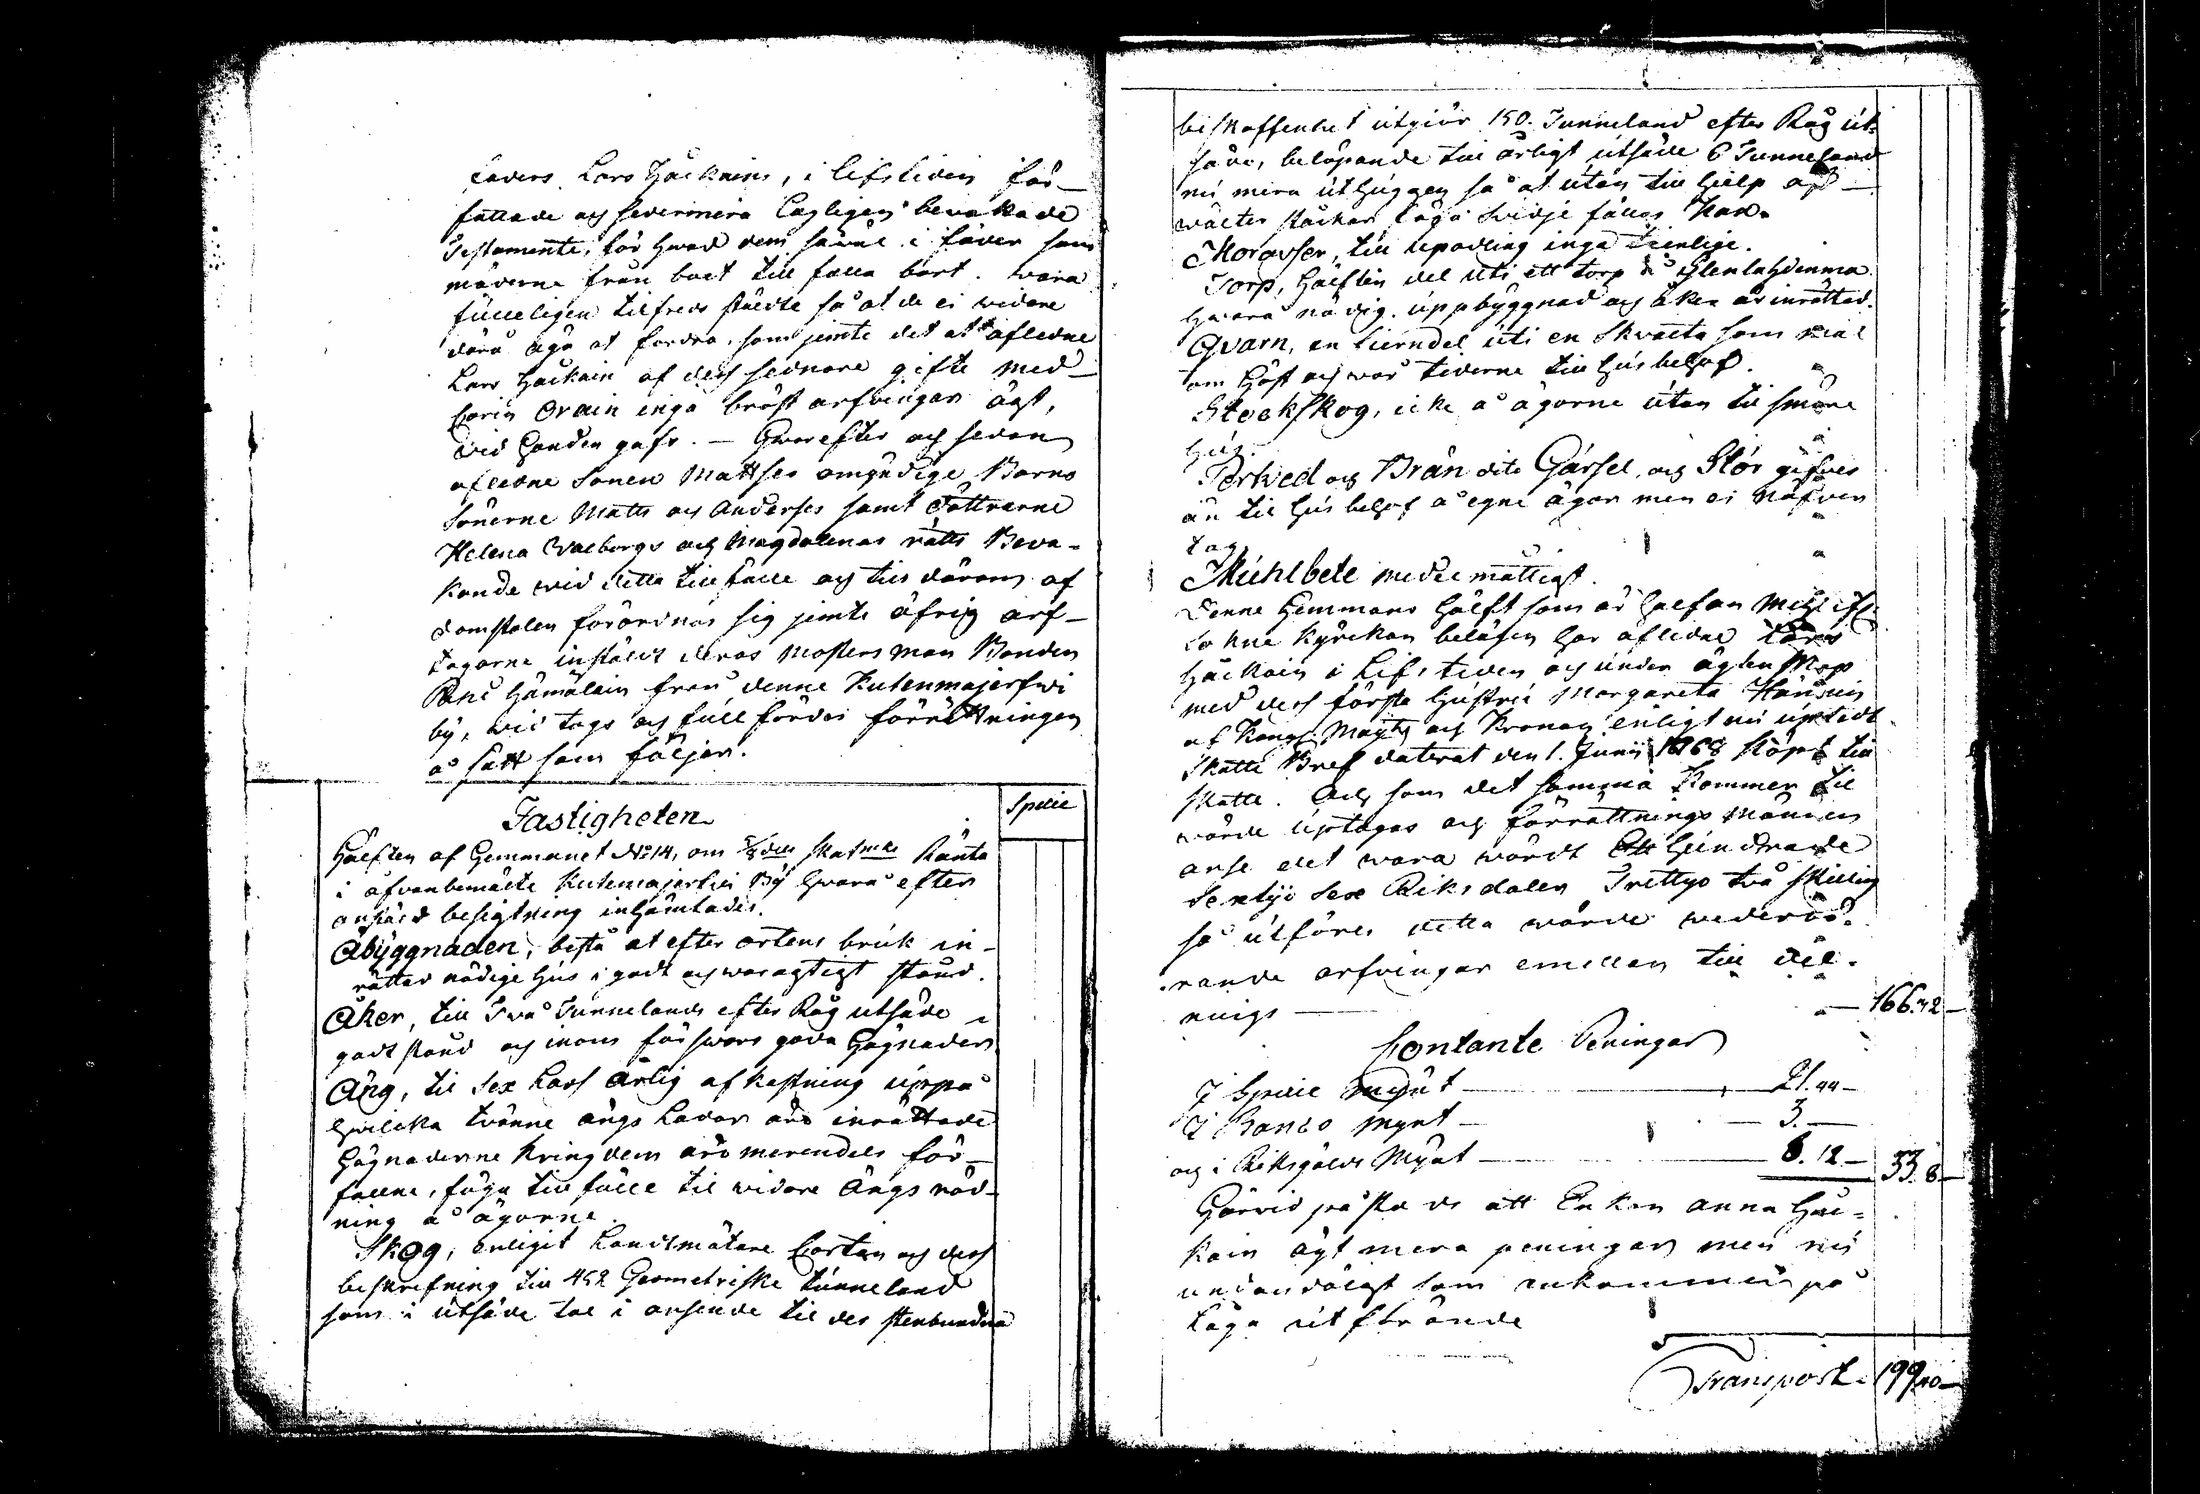 faders Lars Häikäins, i lifstiden för-
fattade och sedermera lagligen bevakade
Testamente, för hwad dem såväl i fäder som
möderne från bort till falla bort. wara
fulleligen tilfreds stälte så at de ei widare
däraf äga at fordra, som jemte det at aflidne
Lars Häikäin af dess sednare gifte med
Carin Orain inga bröst arfvingar ägt,
vid handen gafs. — Hwarefter och sedan
aflidne Sonen Mattses omyndige Barns
Sönerne Matts och Anderses samt Döttrarne
Helena Walborgs och Magdalenas rätt Beva-
kande wid detta tillfälle och tils därom af
domstolen förordnas sig jemte öfrig arf-
tagarne instält deras Mosters man Bonden
Påhl Hämäläin från denne Kutenmajerfwi
by, wid togs och fullfördes förrättningen
å sätt som följer.
Fastigheten
Specie
Hälften af Hemmanet No 14, om 5/8 dels skat mks Ränta
i ofvanbemälte Kutemajerfwi By hvarå efter
anstäld besigtning inhämtades.
Åbyggnaden, bestå at efter ortens bruk in-
rättad nödige hus i godt och waragtigt stånd.
Åker, till Två Tunnelands efter Råg utsäde i
godt stånd och inom förswars goda Hägnader
Äng, til Sex Lass årlig afkastning uppå
hwilka tvänne ängs Lador äro inrättade
Hägnaderne kring dem äro merendels för-
fallne, föga tillfälle til widare Ängs röd-
ning å ägorne.
Skog, enligit Landtmätare Cartan och dess
beskrifning till 452 Geometriske tunneland
som i utsäde tal i anseende til des stenbundna
beskaffenhet utgiör 150. Tunneland efter Råg ut-
säde, belöpande till årligt utsäde 6 Tunneland
nu mera uthuggen så at utan till hielp af
wälter stockar låga swidje fällas kan.
Morasser, till upodling inga tienlige.
Torp, Hälften del uti ett torp å
hwarå nödig. uppbyggnad och åker är inrättad.
Qvarn, en fierndel uti en Skvalta som mal
om Höst och wår tiderne till hus behof.
Stockskog, icke å ägorne utan til smärre
hus.
Perkved och Brän dito Gärsel, och Stör gifves
än til hus behof å egne ägor men ei Näfver
tag
Muhlbete medelmåttigt.
Denne Hemmans hälft som är half an Mihl ifr.
Sokne Kyrckan belägen har aflidne Lars
Häikäin i Lifstiden och under ägtenskap
med dess första hustru Margareta Hänninin
af Kongl. Mayts och Kronan enligt nu uptedt
Skatte Bref daterat den 1. Junii 1768 köpt till
skatte. Och som det samma kommer til
wärde uptagas och förrättnings männen
anse det wara wärdt Ett Hundrade
Sextijo Sex Riksdaler Trettyo två skilling
så utföres detta wärde
rande arfvingar emellan till del-
nings — 166.32 —
Contante Peningar
I Specie mynt — 21.44 —
I Banco mynt — 3. —
och i Riksgälds Mynt — 8.12 — 33.8 —
Härvid påstods att Enkan Anna Häi-
käin ägt mera peningar men nu
undandolgt som ankommer på
Laga utförande
Transport — 199.40 —